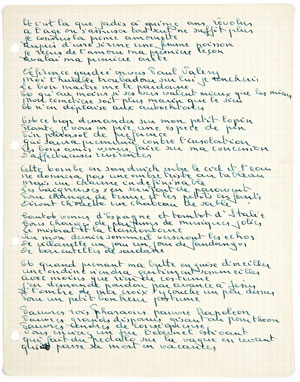 Et c'est là que jadis à quinze ans révolus
à l'âge où s'amuser tout seul ne suffit plus
Je connus la prime amourette
Auprès d'une sirène une femme poisson
Je reçus de l'amour ma première leçon
Avalai ma première arête
Déférence gardée envers Paul Valéry
Moi l'humble troubadour sur lui je renchéris
Le bon maître me le pardonne
Et qu'au moins si ses vers valent mieux que les miens
Mon cimetière soit plus marin que le sien
Et n'en déplaise aux autochtones
Est-ce trop demander sur mon petit lopin
Plantez je vous en prie une espèce de pin
Pin parasol de préférence
Qui saura prémunir contre l'insolation
Les bons amis venus faire sur ma concession
D'affectueuses révérences
Cette tombe en sandwich entre le ciel et l'eau
Ne donnera pas une ombre triste au tableau
Mais un charme indéfinissable
Les baigneuses s'en serviront de paravent
Pour changer de tenue et les petits enfants
Diront chouette un château de sable
Tantôt venant d'Espagne et tantôt d'Italie
Tous chargés de parfums de musiques jolies
Le mistral et la tramontane
Sur mon dernier sommeil verseront les échos
De villanelle un jour un jour de fandangos
De tarentelles de sardanes
Et quand prenant ma butte en guise d'oreiller
Une ondine viendra gentiment sommeiller
Avec moins que rien de costume
J'en demande pardon par avance à Jésus
Si l'ombre de ma croix s'y couche un peu dessus
Pour un petit bonheur posthume
Pauvres rois pharaons pauvre Napoléon
Pauvres grands disparus gisant au Panthéon
Pauvres cendres de conséquence
Vous envierez un peu l'éternel estivant
Qui fait du pédalo sur la vague en rêvant
Qui passe sa mort en vacances